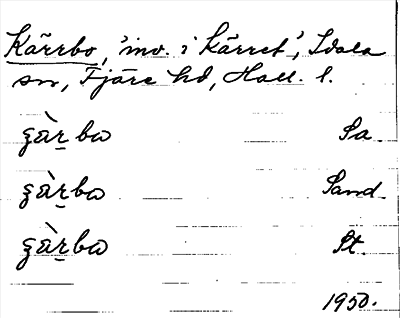 Kärrbo, 'inv. i Kärret', Idala
sn, Fjäre hd, Hall. l.
gàr̲bo Sa.
gàr̲bo Sand.
gàr̲bo St.
1950.